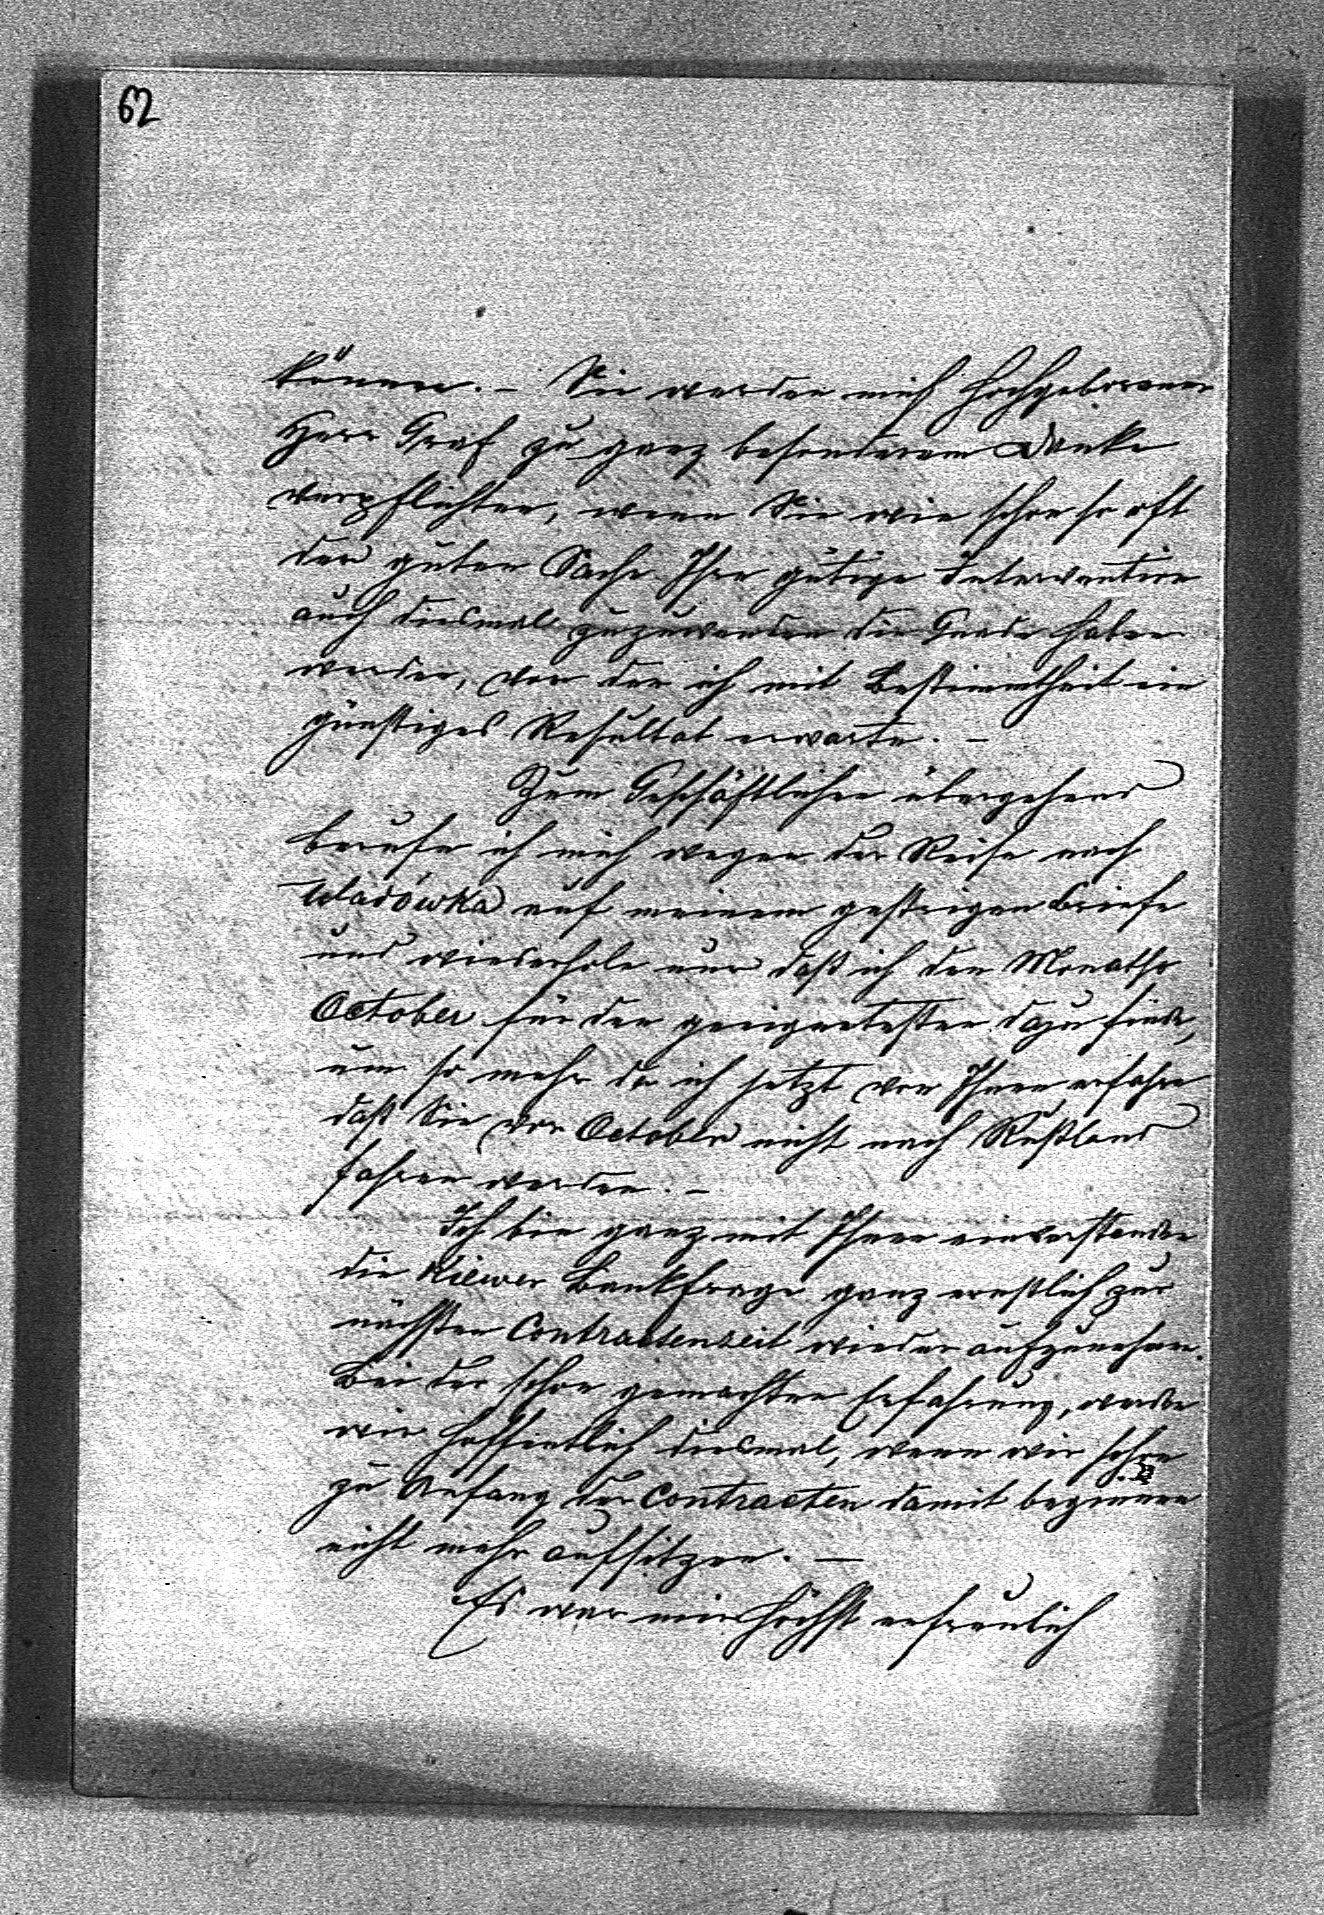 62
können. – Sie werden mich hochgeborener
Herr Graf zu ganz besonderem Danke
verpflichten, wenn Sie wie schon so oft
der guten Sache Ihre gütige Intervention
auch diesmal zuzuwenden die Gnade haben
werden, von der ich mit Bestimmtheit ein
günstiges Resultat erwarte. –
Zum Geschäftlichen übergehend
berufe ich mich wegen der Reise nach
auf meinem gestrigen Briefe
und wiederhole nur daß ich den Monathe
October für den geeignetesten dazu finde,
um so mehr da ich jetzt von Ihnen erfahre
daß Sie vor October nicht nach Rußland
fahren werden. –
Ich bin ganz mit Ihnen einverstanden
die Kiewer Bankfrage ganz ernstlich zur
nächsten Contractenzeit wieder aufzunehmen.
Bei der schon gemachten Erfahrung, werden
wir hoffentlich diesmal, wenn wir schon
zu Anfang der Contracten damit beginnen
nicht mehr aufsitzen. –
Es war mir höchst erfreulich